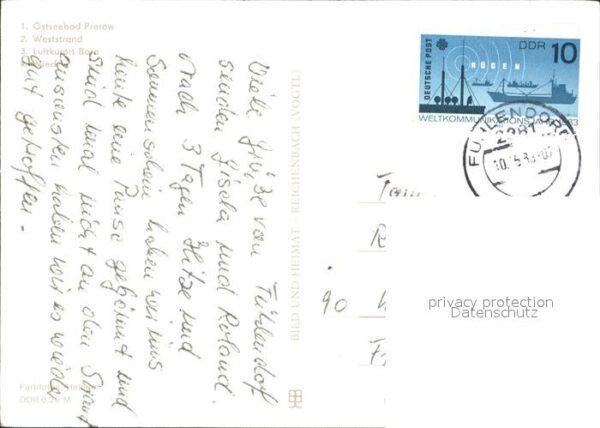 1. Ostseebad Prerow
2. Weststrand
3. Luftkurort Born
Viele Grüße von Fuhlendorf
senden Gisela und Roland.
Nach 3 Tagen Hitze und
Sonnenschein haben wir uns
heute eine Pause gegönnt und
sind mal nicht an den Strand
Ansonsten haben wir es wieder
gut getroffen.
DDR 0,20 M
BILD UND HEIMAT · REICHENBACH (VOGTL)
DEUTSCHE POST
DDR 10
RÜGEN
WELTKOMMUNIKATIONSJAHR 1983
FUHLENDORF
2381
Fam
R
90 K
privacy protection
Datenschutz